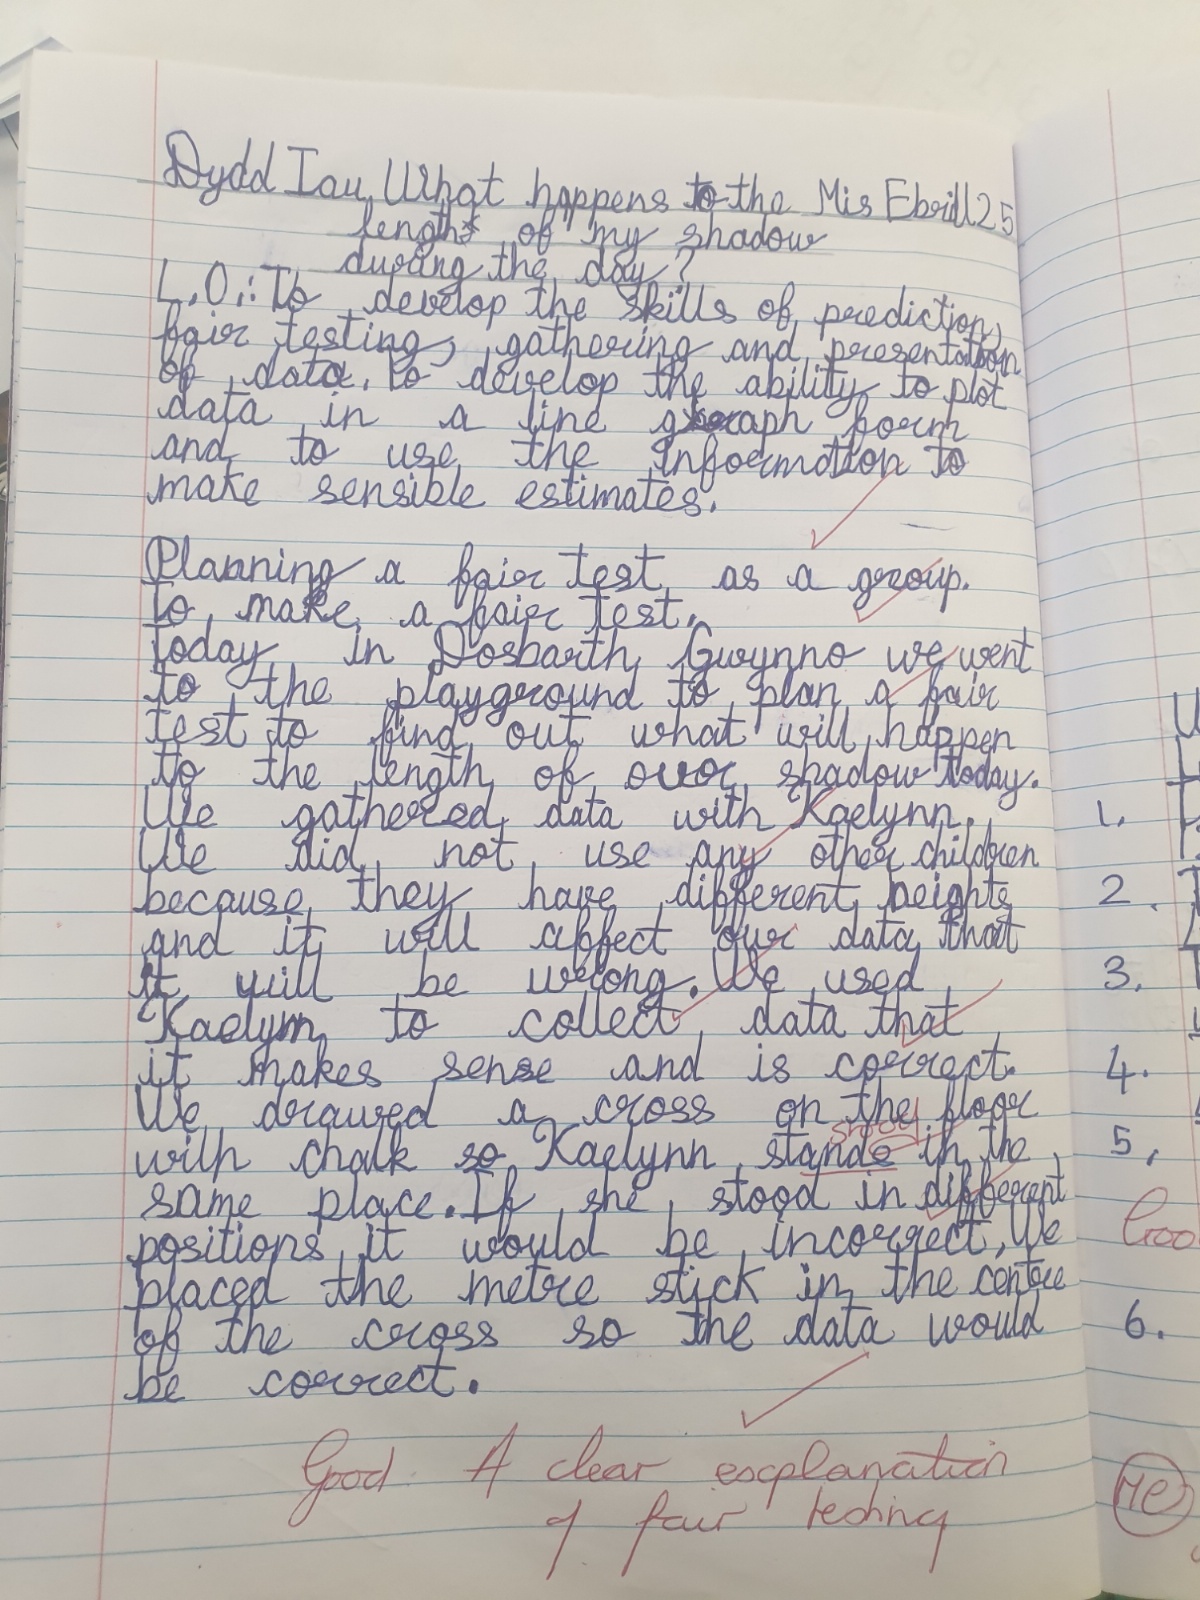 Dydd Iau What happens to the Mis Ebrill 25
length of my shadow
during the day?
L.O.: To develop the skills of prediction,
fair testing, gathering and presentation
of data. To develop the ability to plot
data in a line graph form
and to use the information to
make sensible estimates.
Planning a fair test as a group.
To make a fair test.
Today in Dosbarth Gwynno we went
to the playground to plan a fair
test to find out what will happen
to the length of our shadow today.
We gathered data with Kaelynn.
We did not use any other children
because they have different heights
and it will affect our data that
it will be wrong. We used
Kaelynn to collect data that
it makes sense and is correct.
We drawed a cross on the floor
stood
with chalk so Kaelynn stands in the
same place. If she stood in different
positions it would be incorrect. We
placed the metre stick in the centre
of the cross so the data would
be correct.
Good. A clear explanation
of fair testing
1.
2.
3.
4.
5.
6.